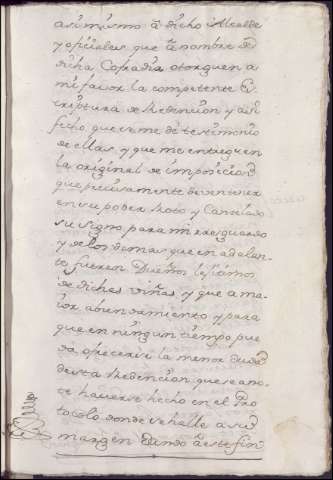 asimismo a dicho Alcalde
y oficiales que a nombre de
dicha Cofradia otorguen a
mi favor la competente Es
criptura de Redencion y a su
fecho, que se me dé testimonio
de ellas, y que me entreguen
la original de imposicion
que precisamente deven tener
en su poder Roto y Cancelado
su signo, para mi resguardo
y de los demas que en adelan-
te fueren Dueños lexitimos
de dichas viñas y que a ma-
ior abundamiento y para
que en ningun tiempo pue
da ofrecerse la menor duda
de esta Redencion, que se ano-
te haverse hecho en el Pro
tocolo donde se halle a su
margen Dando a este fin